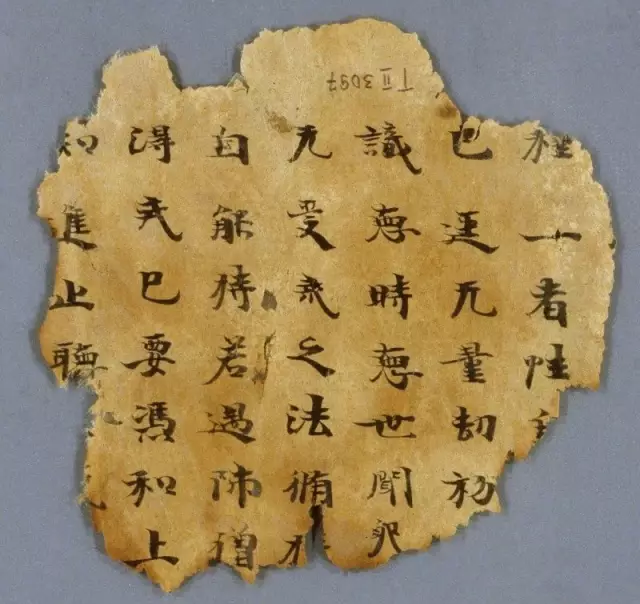 T II 3097
者性
已逕无量劫初
識時世聞
凡受戒之法脩
自能持若遇師僧
得戒已要馮和上
知進止聽